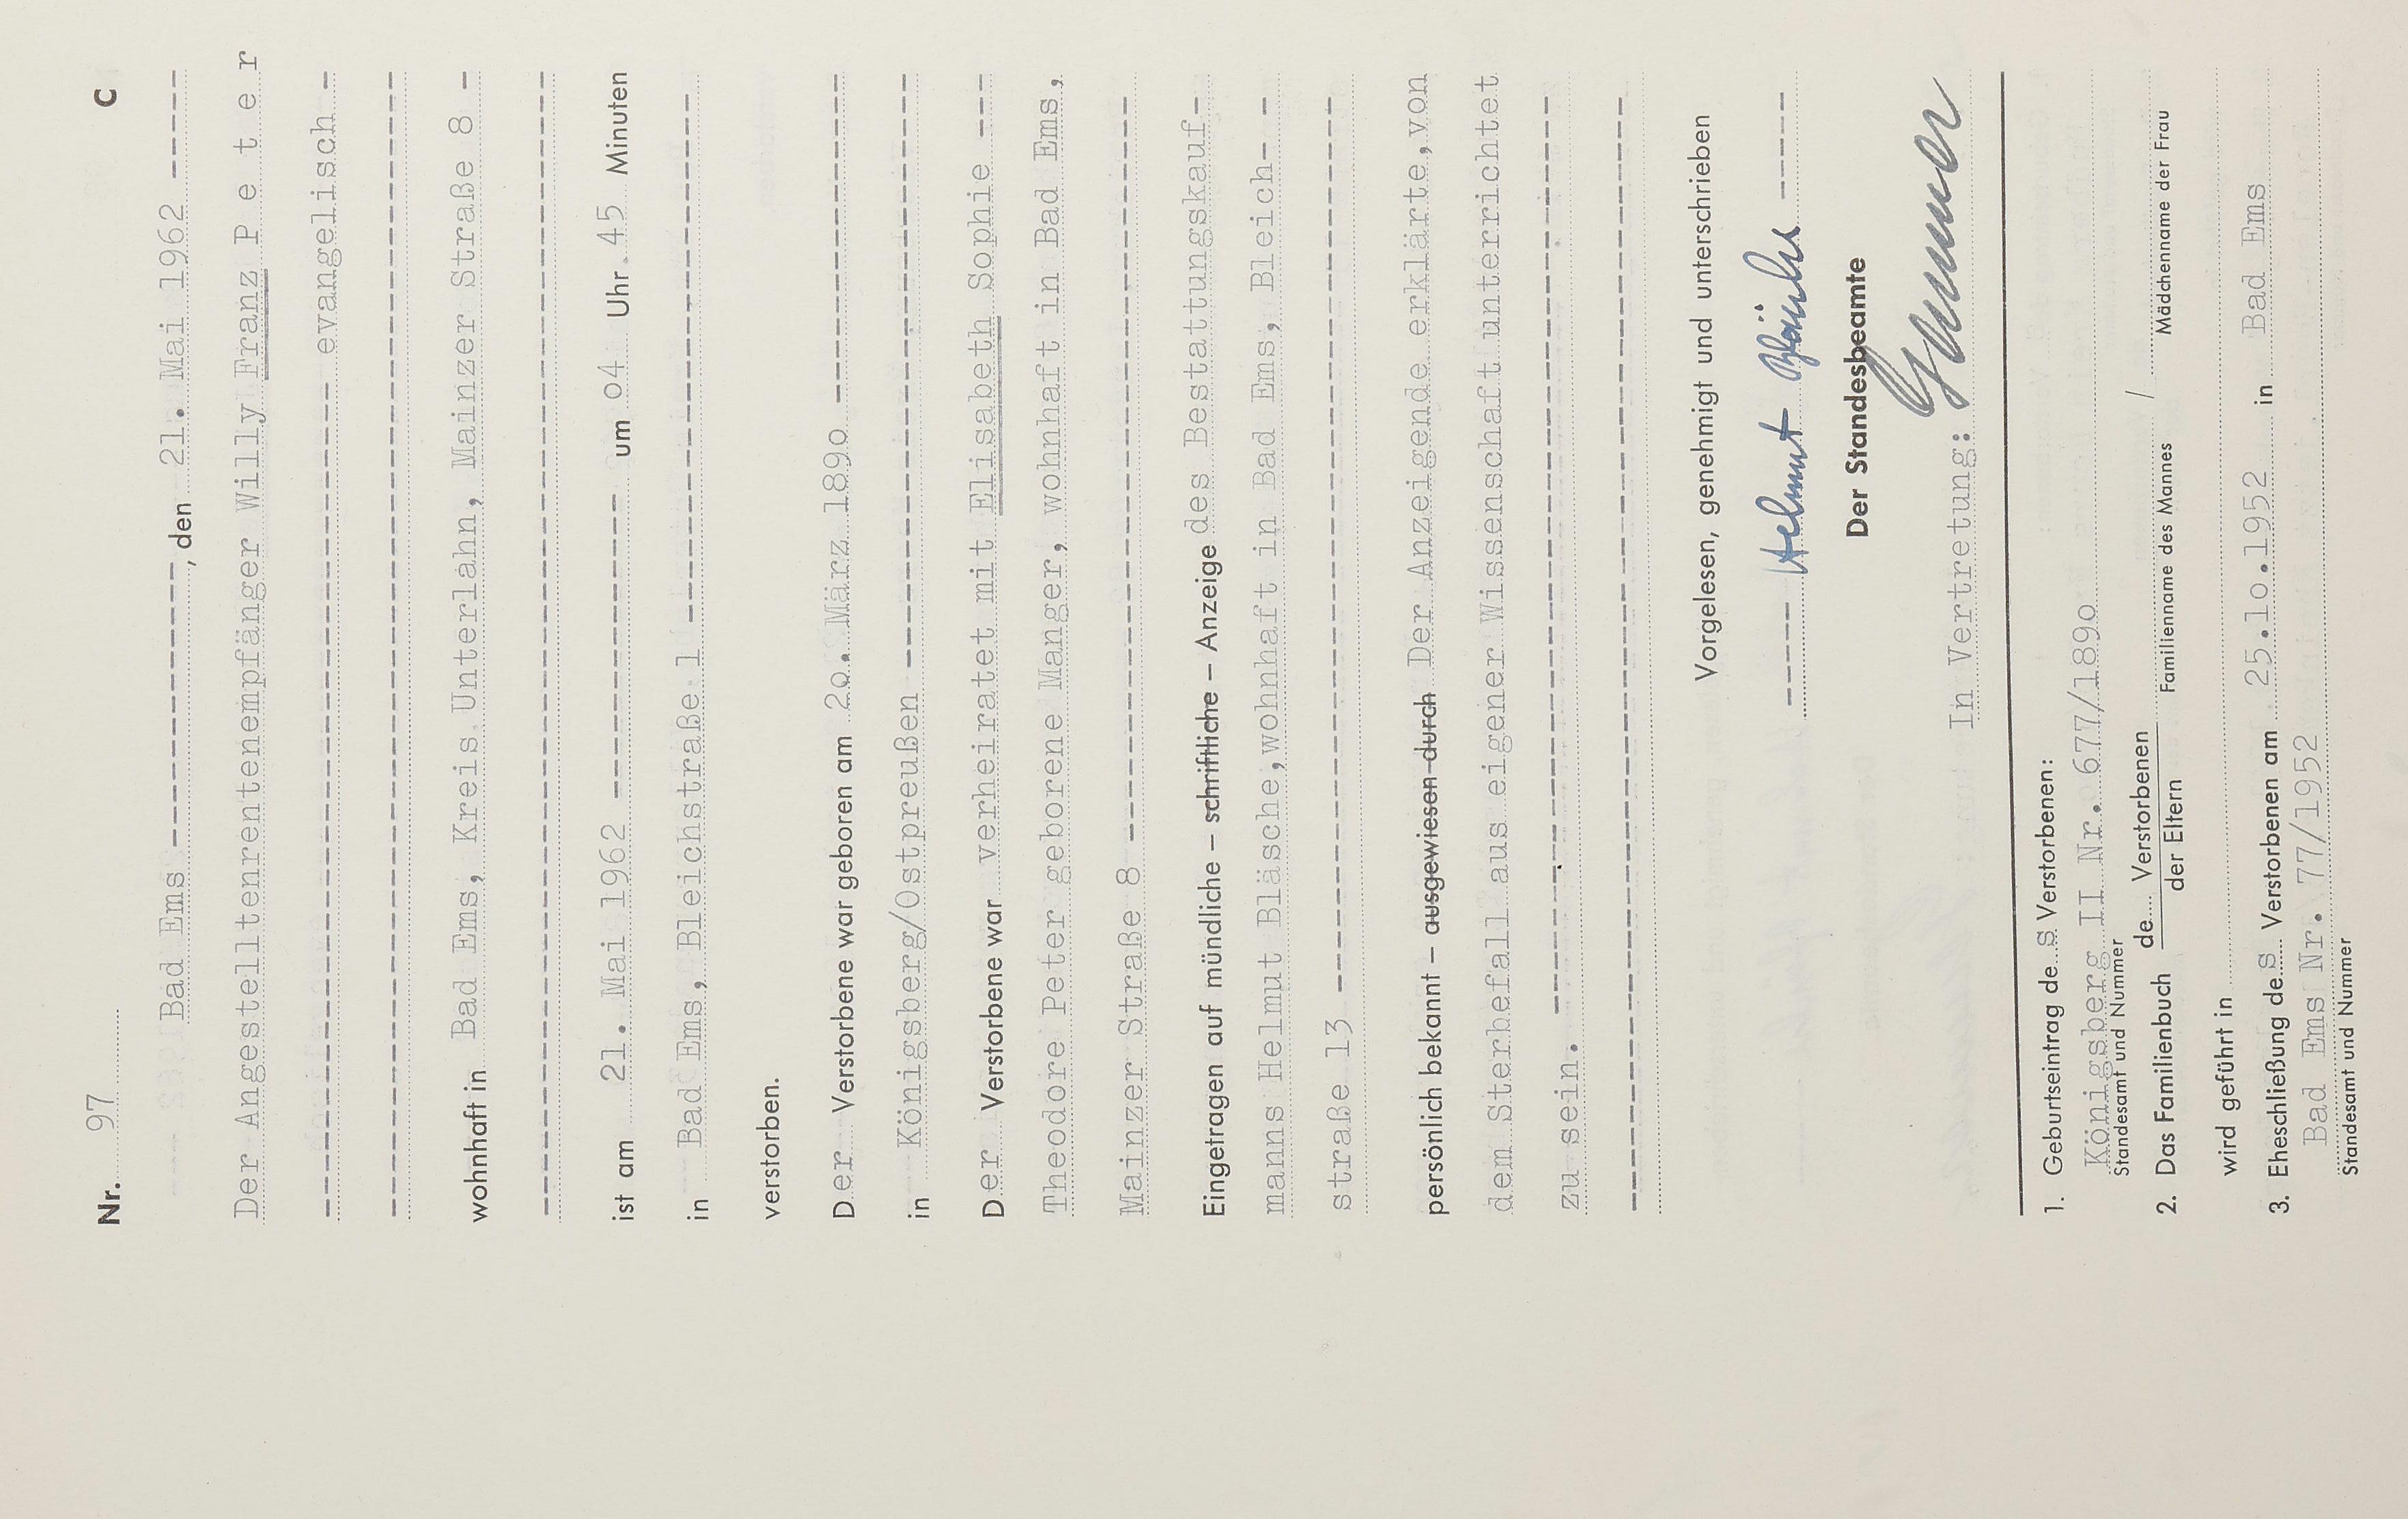 Nr. 97 C
Bad Ems ----------------, den 21. Mai 1962 -----
Der Angestelltenrentenempfänger Willy Franz P e t e r
---------------------------------- evangelisch -
---------------------------------------------
wohnhaft in Bad Ems, Kreis Unterlahn, Mainzer Straße 8 -
---------------------------------------------
ist am 21. Mai 1962 ---------------- um o4 Uhr 45 Minuten
in Bad Ems, Bleichstraße 1 ---------------------------
verstorben.
Der Verstorbene war geboren am 2o. März 189o ----------------
in Königsberg/Ostpreußen -------------------------------
Der Verstorbene war verheiratet mit Elisabeth Sophie ---
Theodore Peter geborene Manger, wohnhaft in Bad Ems,
Mainzer Straße 8 ------------------------------------
Eingetragen auf mündliche – schriftliche – Anzeige des Bestattungskauf-
manns Helmut Bläsche,wohnhaft in Bad Ems, Bleich- -
straße 13 -------------------------------------------
persönlich bekannt – ausgewiesen durch Der Anzeigende erklärte,von
dem Sterbefall aus eigener Wissenschaft unterrichtet
zu sein. --------------------------------------------
---------------------------------------------------
Vorgelesen, genehmigt und unterschrieben
------ Helmut Bläsche -----
Der Standesbeamte
In Vertretung:
1. Geburtseintrag des Verstorbenen:
Königsberg II Nr. 677/189o
Standesamt und Nummer
2. Das Familienbuch de Verstorbenen / der Eltern /
Familienname des Mannes Mädchenname der Frau
wird geführt in
3. Eheschließung des Verstorbenen am 25.1o.1952 in Bad Ems
Bad Ems Nr. 77/1952
Standesamt und Nummer